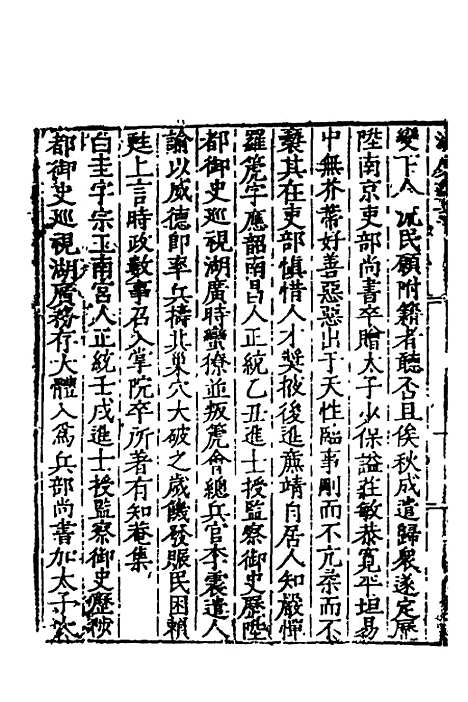 變下人 流民願附籍者聽否且俟秋成遣歸衆遂定屢
陞南京吏部尚書卒贈太子少保謚莊敏恭寬平坦易
中無芥蒂好善惡惡出于天性臨事剛而不亢柔而不
褻其在吏部愼惜人才奬掖後進亷靖自居人知嚴憚
羅箎字應韶南昌人正統乙丑進士授監察御史歷陞
都御史廵視湖廣時蠻獠並叛箎會總兵官李震遣人
諭以威德即率兵擣其巢穴大破之歲饑發賑民困賴
甦上言時政數事召入掌院卒所著有知菴集
白圭字宗玉南宮人正統壬戌進士授監察御史歷陞
都御史廵視湖廣務存大體入爲兵部尚書加太子少